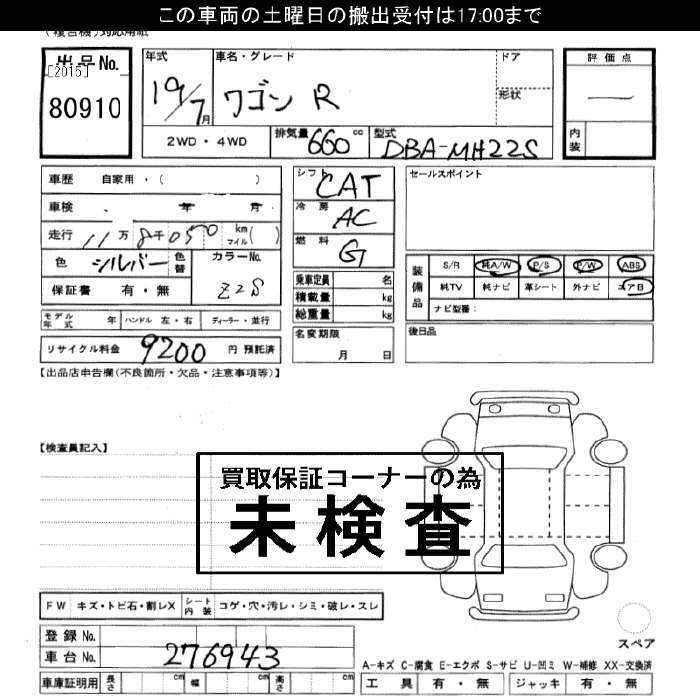 この車両の土曜日の搬出受付は17:00まで
出品No.
[2015]
80910
年式
19/7月
車名・グレード
ワゴン R
ドア
形状
2WD・4WD
排気量 660 cc
型式 DBA-MH22S
評価点
—
内装
車歴 自家用・( )
車検 年 月
走行 11万 8千 050 km マイル( )
色 シルバー 色替
カラーNo.
Z2S
保証書 有・無
モデル年式 年 ハンドル 左・右 ディーラー・並行
リサイクル料金 9200 円 預託済
シフト CAT
冷房 AC
燃料 G
乗車定員 名
積載量 kg
総重量 kg
名変期限
月 日
セールスポイント
装備品
S/R 純A/W P/S P/W ABS
純TV 純ナビ 革シート 外ナビ エアB
ナビ型番:
後日品
【出品店申告欄(不良箇所・欠品・注意事項等)】
【検査員記入】
買取保証コーナーの為
未検査
FW キズ・トビ石・割レX
シート内装 コゲ・穴・汚レ・シミ・破レ・スレ
登録No.
車台No. 276943
車庫証明用 長さ cm 幅 cm 高さ cm
スペア
A-キズ C-腐食 E-エクボ S-サビ U-凹ミ W-補修 XX-交換済
工具 有・無 ジャッキ 有・無